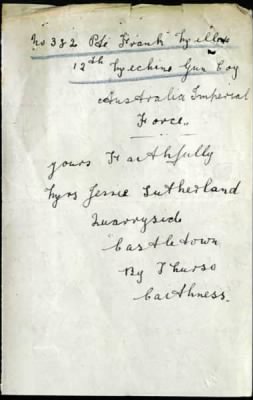 No 382 Pte Frank Myllow
12th Mechine Gun Coy
Australia Imperial
Force.
yours Faithfully
Mrs Jessie Sutherland
Quarryside
Castletown
By Thurso
Caithness.